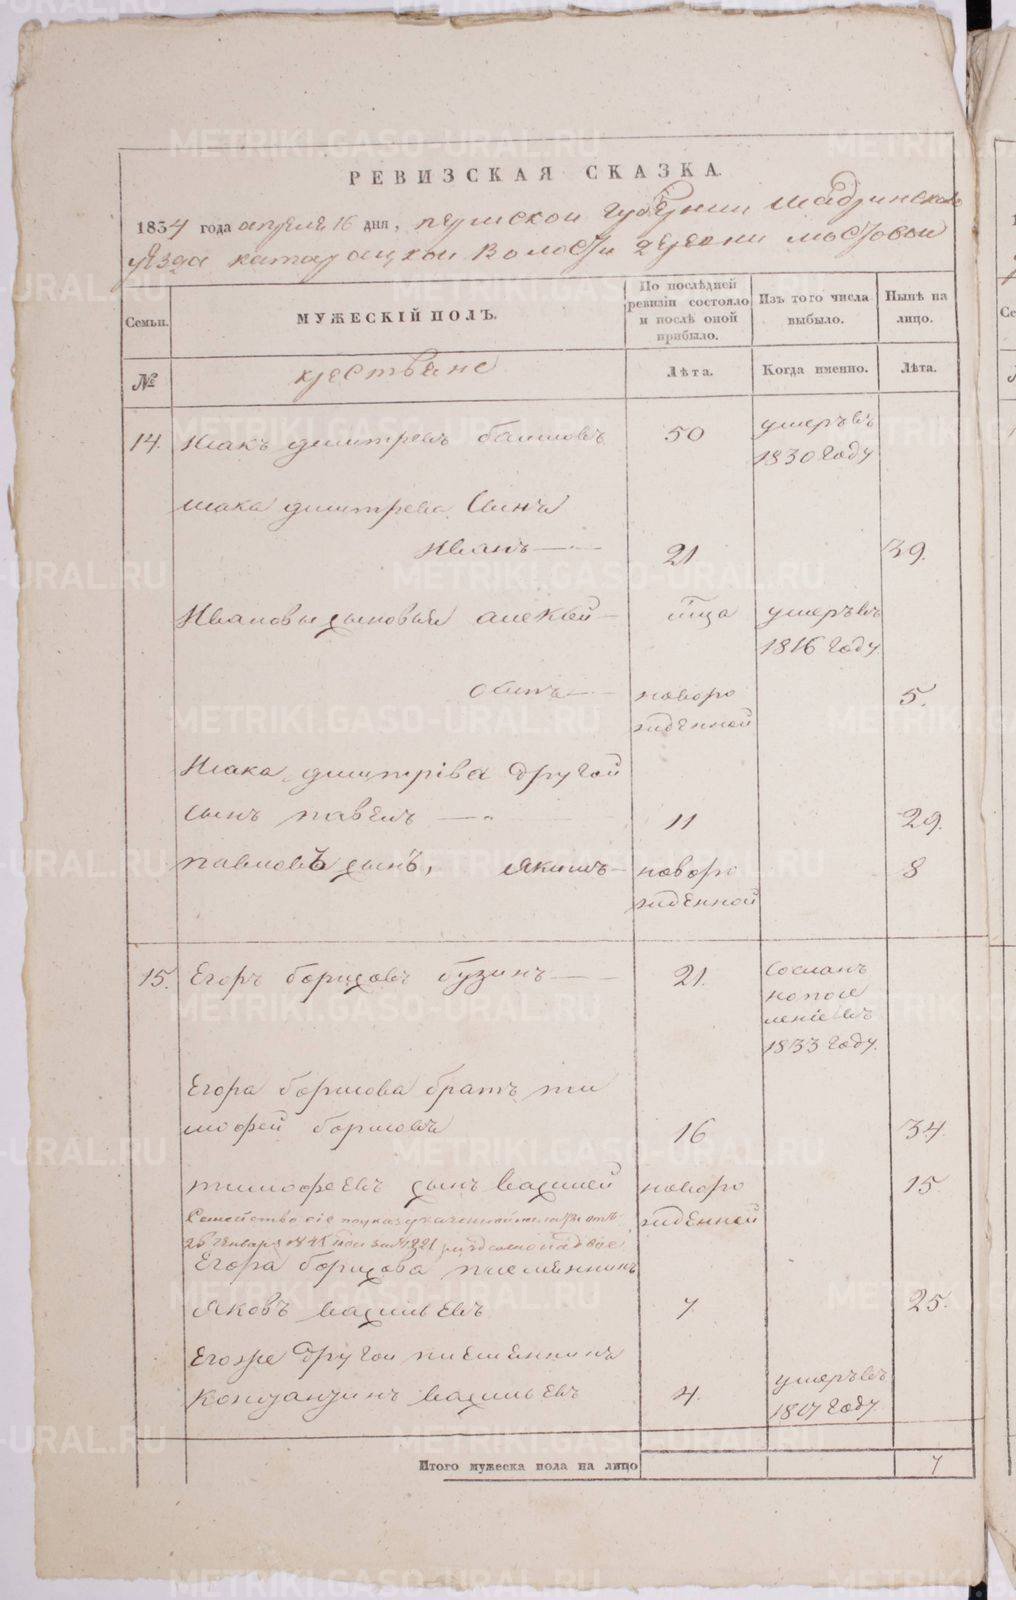 РЕВИЗСКАЯ СКАЗКА.
1834 года апреля 16 дня, пермской губернии шадринскаго
уезда катарацкой волости деревни мостовой
Семьи.
МУЖЕСКІЙ ПОЛЪ.
По послѣдней ревизіи состояло и послѣ оной прибыло.
Изъ того числа выбыло.
Нынѣ на лицо.
№
крестьяне
Лѣта.
Когда именно.
Лѣта.
14. Исакъ димитревъ 50 умеръ въ
1830 году
исака димитрева сынъ
Иванъ 21 39.
Ивановы сыновья алексей умеръ въ
1816 году
осипъ новоро 5.
жденной
Исака димитріва другой
сынъ павелъ 11 29.
павловъ сынъ, якимъ новоро 8
жденной
15. Егоръ борисовъ бузинъ 21. сосланъ
на посе
леніе въ
1833 году.
Егора борисова братъ ти
мофей борисовъ 16 34.
тимофеевъ сынъ василей новоро 15.
жденной
Семейство сіе по указу казенной палаты отъ
Егора борисова племянникъ
яковъ васильевъ 7 25.
Егоже другой племянникъ
констянтинъ васильевъ 4. умеръ въ
1817 году
Итого мужеска пола на лицо 7
METRIKI.GASO-URAL.RU